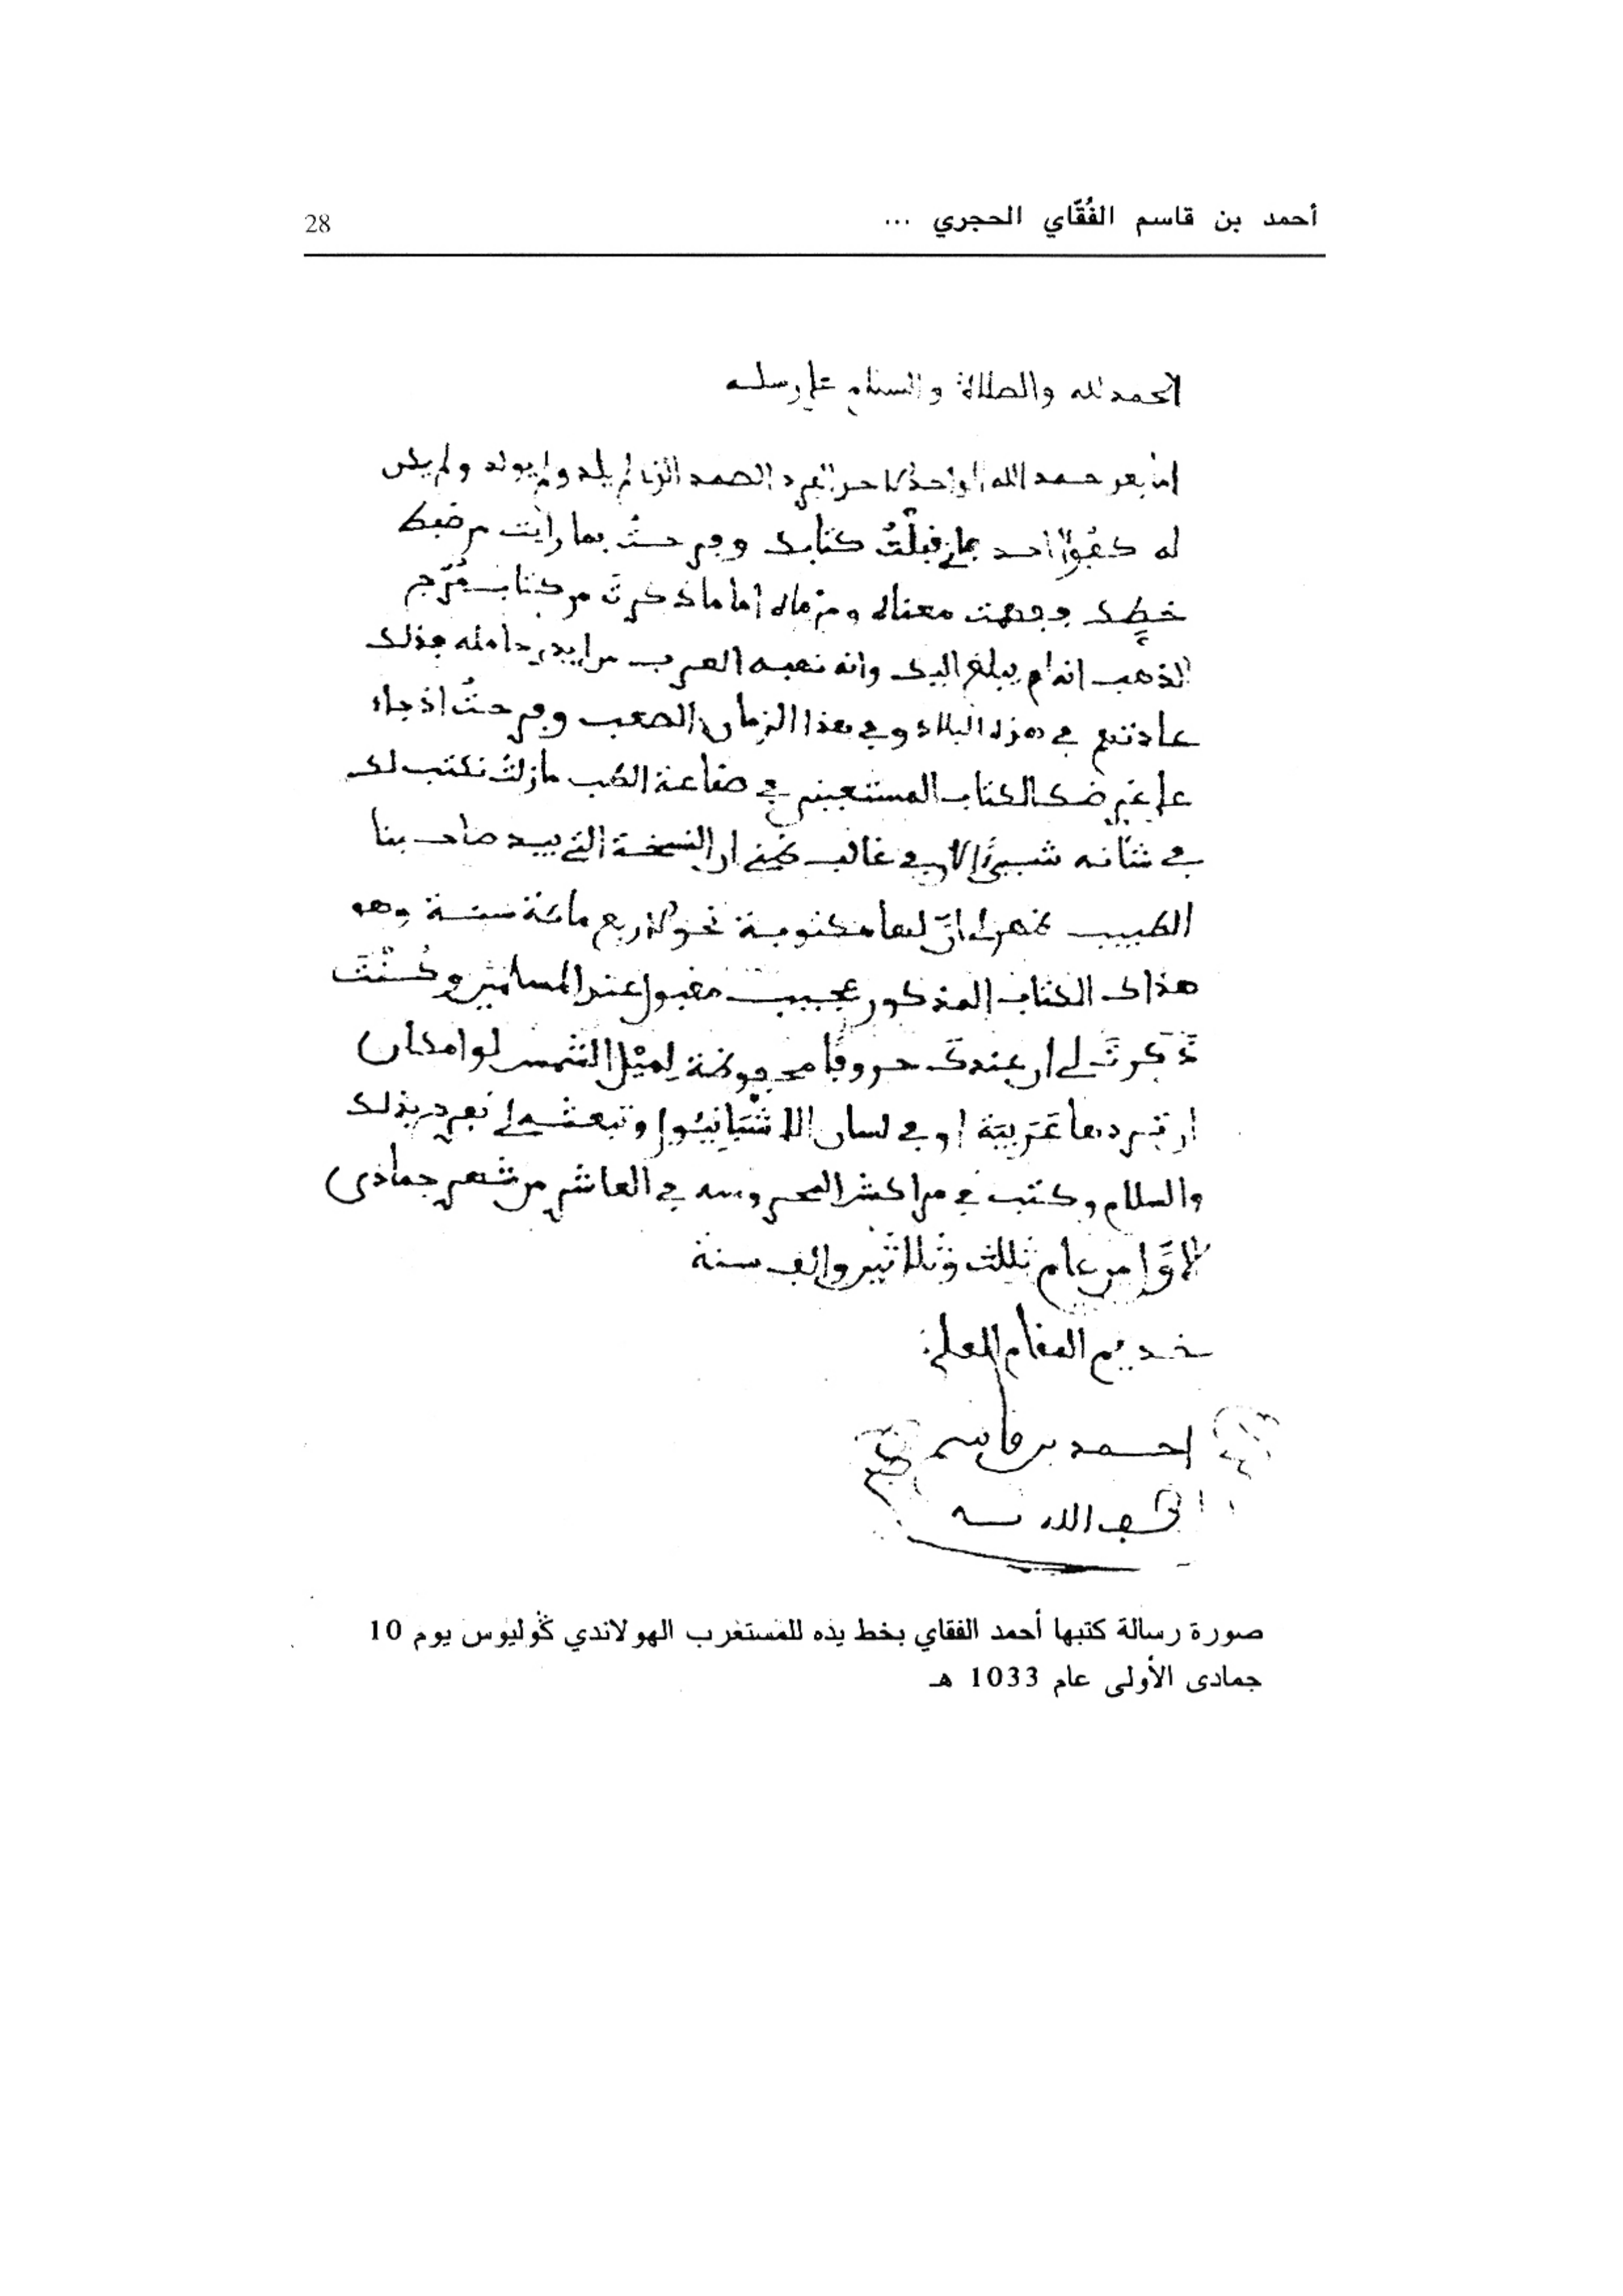 أحمد بن قاسم الفُقّاي الحجري ...
28
الحمد لله والصلاة والسلام على رسله
اما بعد حمد الله الواحد الاحد الفرد الصمد الذي لم يلد ولم يولد ولم يكن
له كفوا احد فاني قبلتُ كتابك وفرحتُ بما رايت من ضبط
خطِّك وفهمت معناه ومرماه اما ما ذكرتَ من كتاب مُرَّج
الذهب انه لم يبلغ اليك وانه نهبه العرب من ايدي حامله فذلك
عادتهم في هذه البلاد وفي هذا الزمان الصعب وفرحتُ اذ جاء
على غرضك الكتاب المستعيني في صناعة الطب مازلتُ نكتب لك
في شأنه شيئًا لان في غالب ظني ان النسخة التي بيد صاحبنا
الطبيب ظهر لي انّ لها مكتوبة نحو الاربع مائة سنة وهو
هذاك الكتاب المذكور عجيب مقبول عند المسلمين وكُنْتَ
ذَكَرتَ لي ان عندكَ حروفًا مجموعة لِمَيْل الشمس لو امكن
ان تردها عَرَبِيَّة او في لسان الاشْبَانْيُول وتبعثه لي نفرح بذلك
والسلام وكتب في مراكش المحروسه في العاشر من شهر جمادى
الاوَّل من عام ثلث وثلاثين والف سنة
خديم المقام العلي
احمد بن قاسم
لطف الله به
صورة رسالة كتبها أحمد الفقاي بخط يده للمستعرب الهولاندي ڭوليوس يوم 10
جمادى الأولى عام 1033 هـ